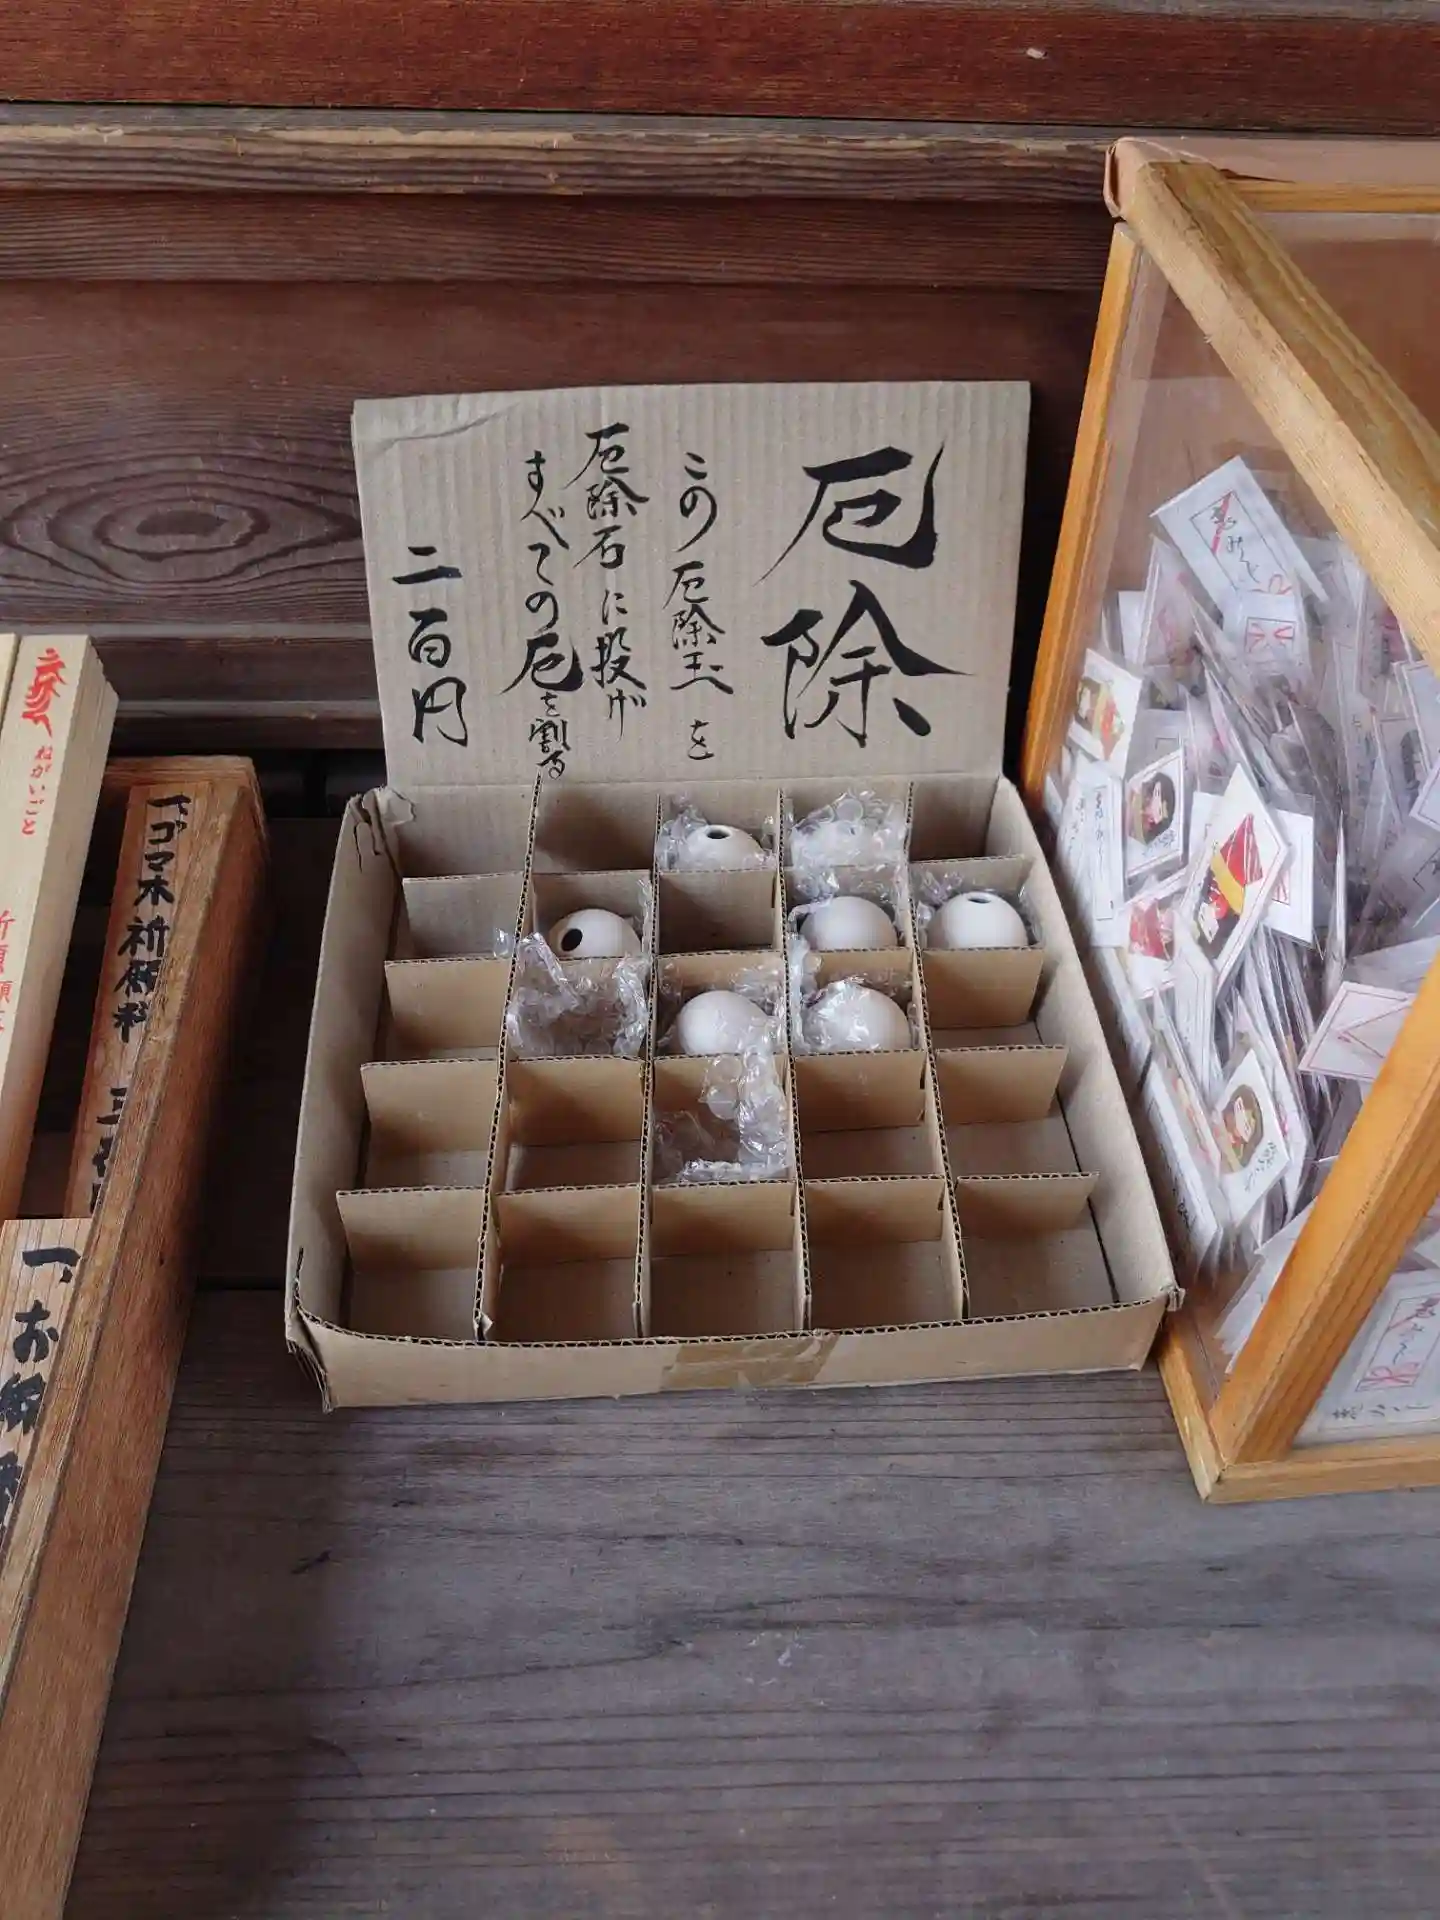 厄除
この厄除玉を
厄除石に投げ
すべての厄を割る
二百円
ねがいごと
祈願
一、ゴマ木祈願料
一、お
おみくじ